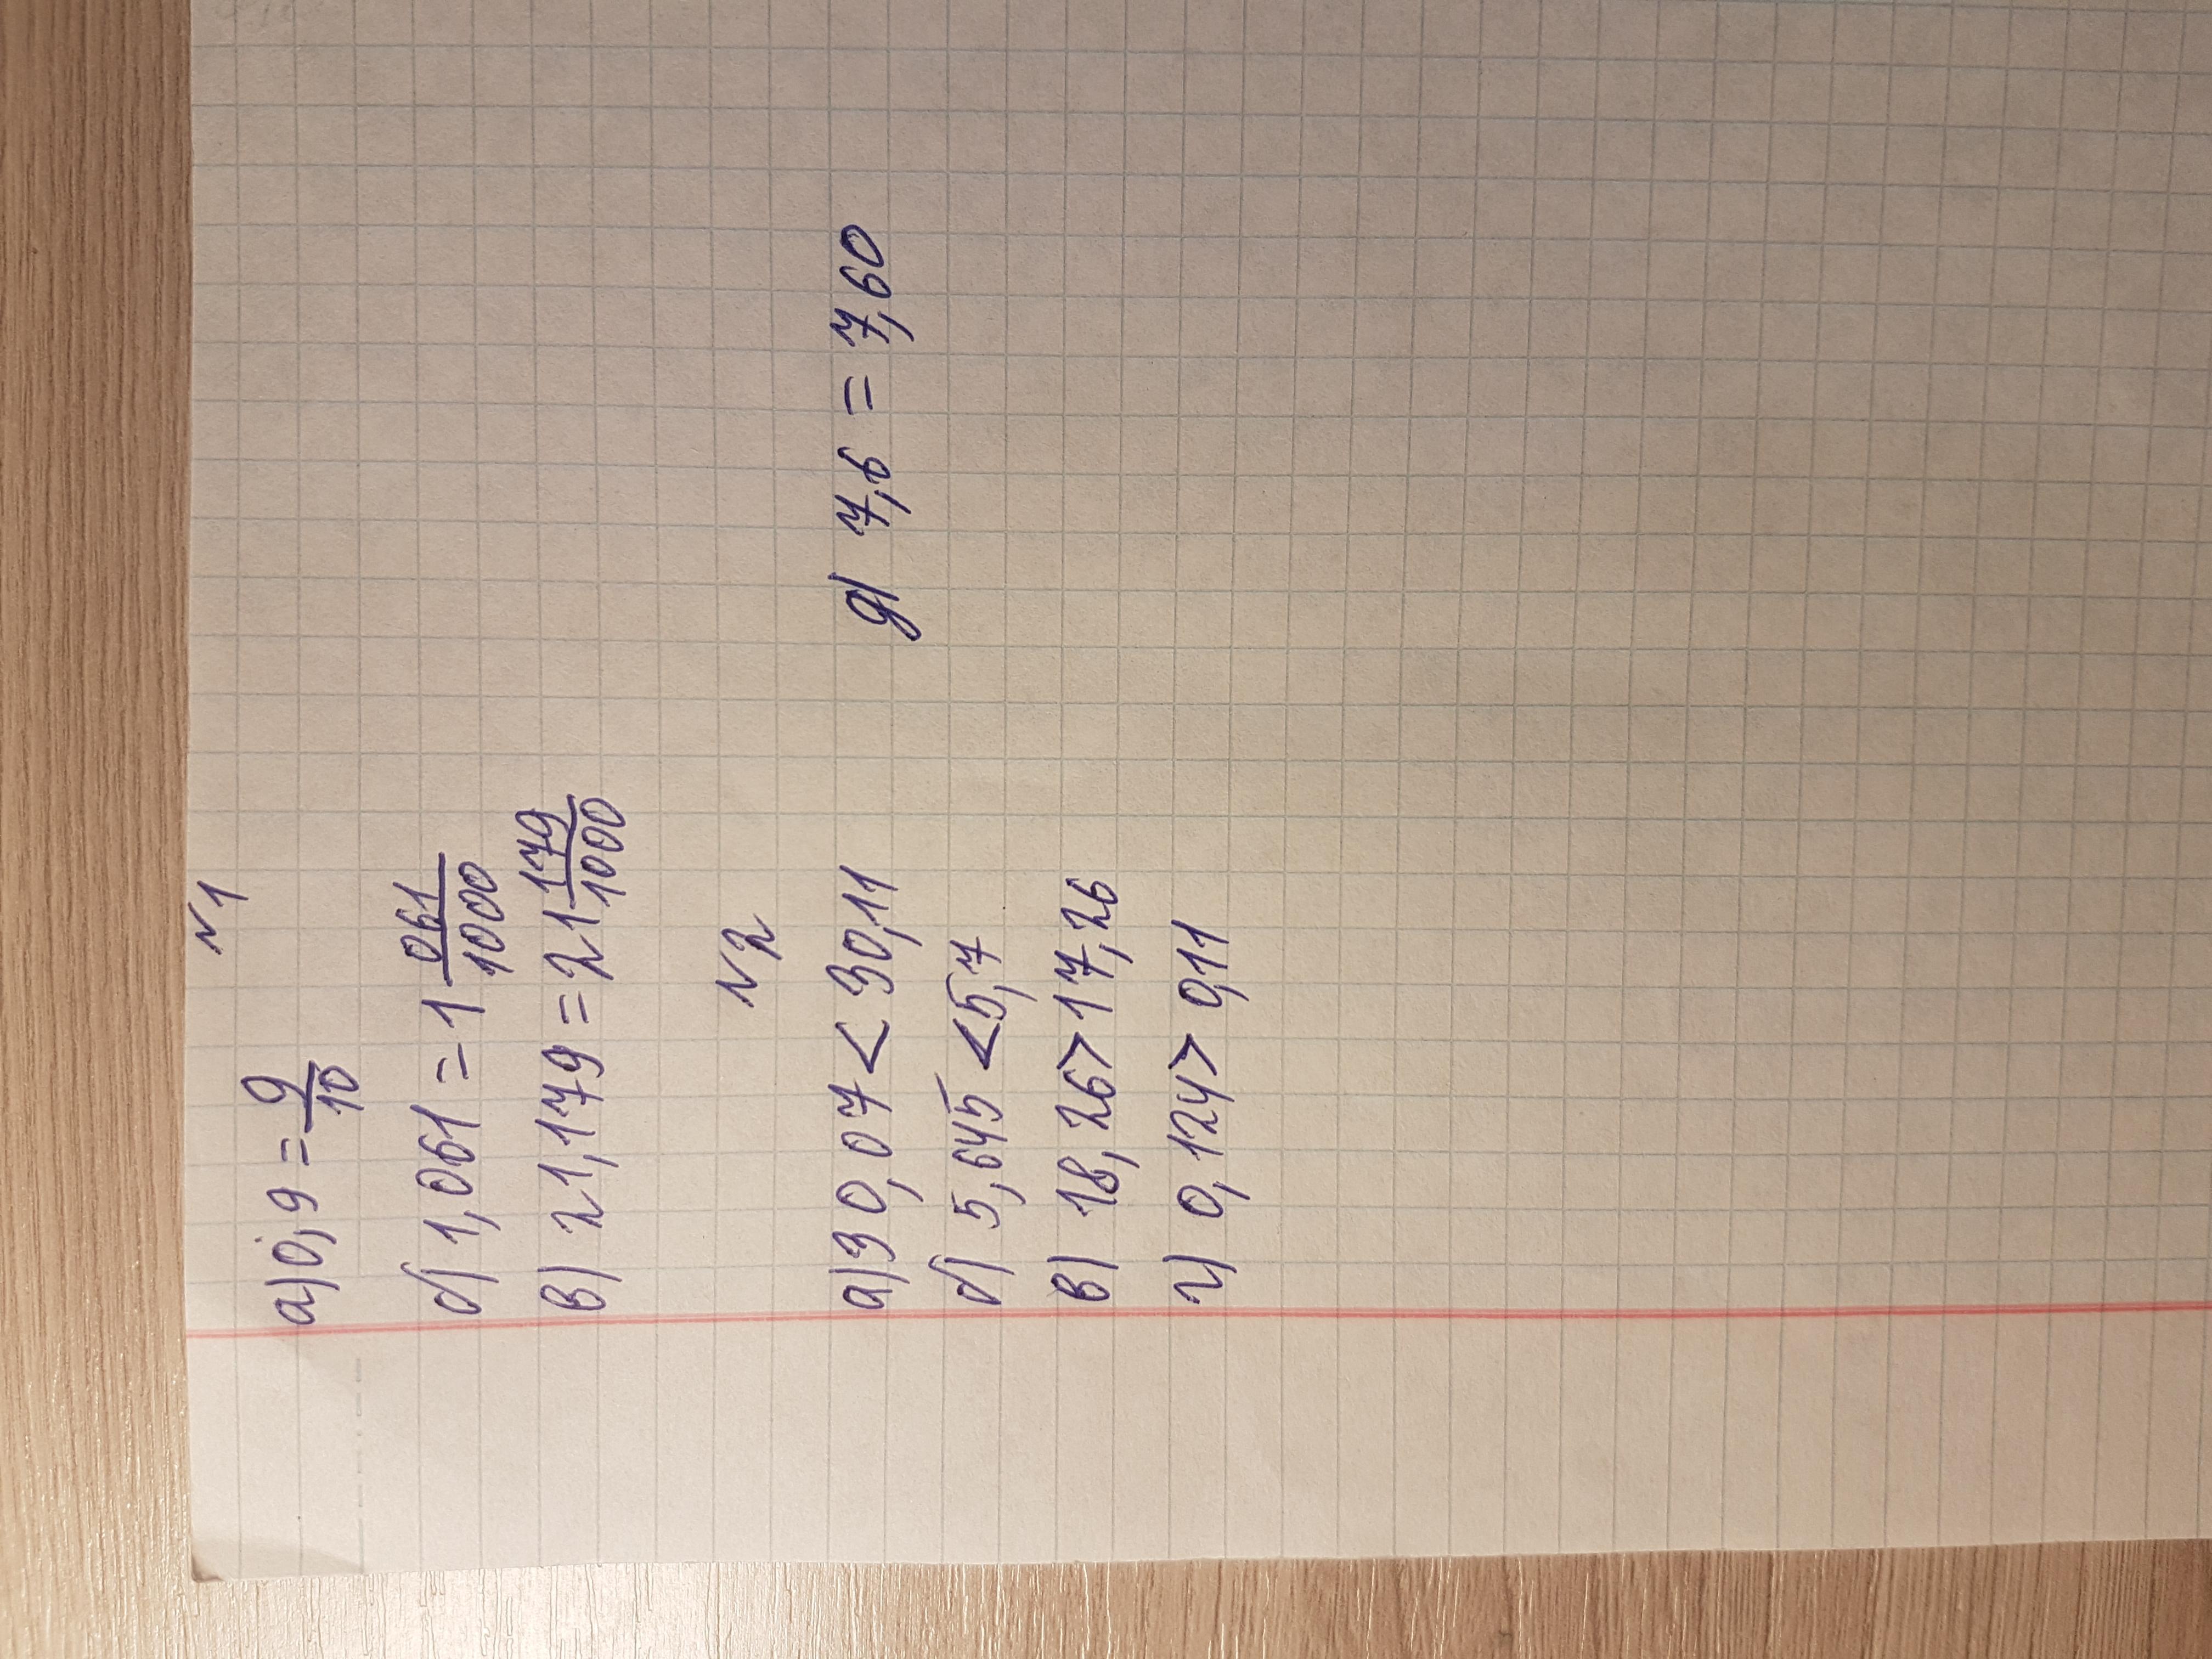 №1
а) 0,9 = 9/10
б) 1,061 = 1 061/1000
в) 21,179 = 21 179/1000
№2
а) 30,07 < 30,11 д) 7,6 = 7,60
б) 5,645 < 5,7
в) 18,26 > 17,26
г) 0,124 > 0,11